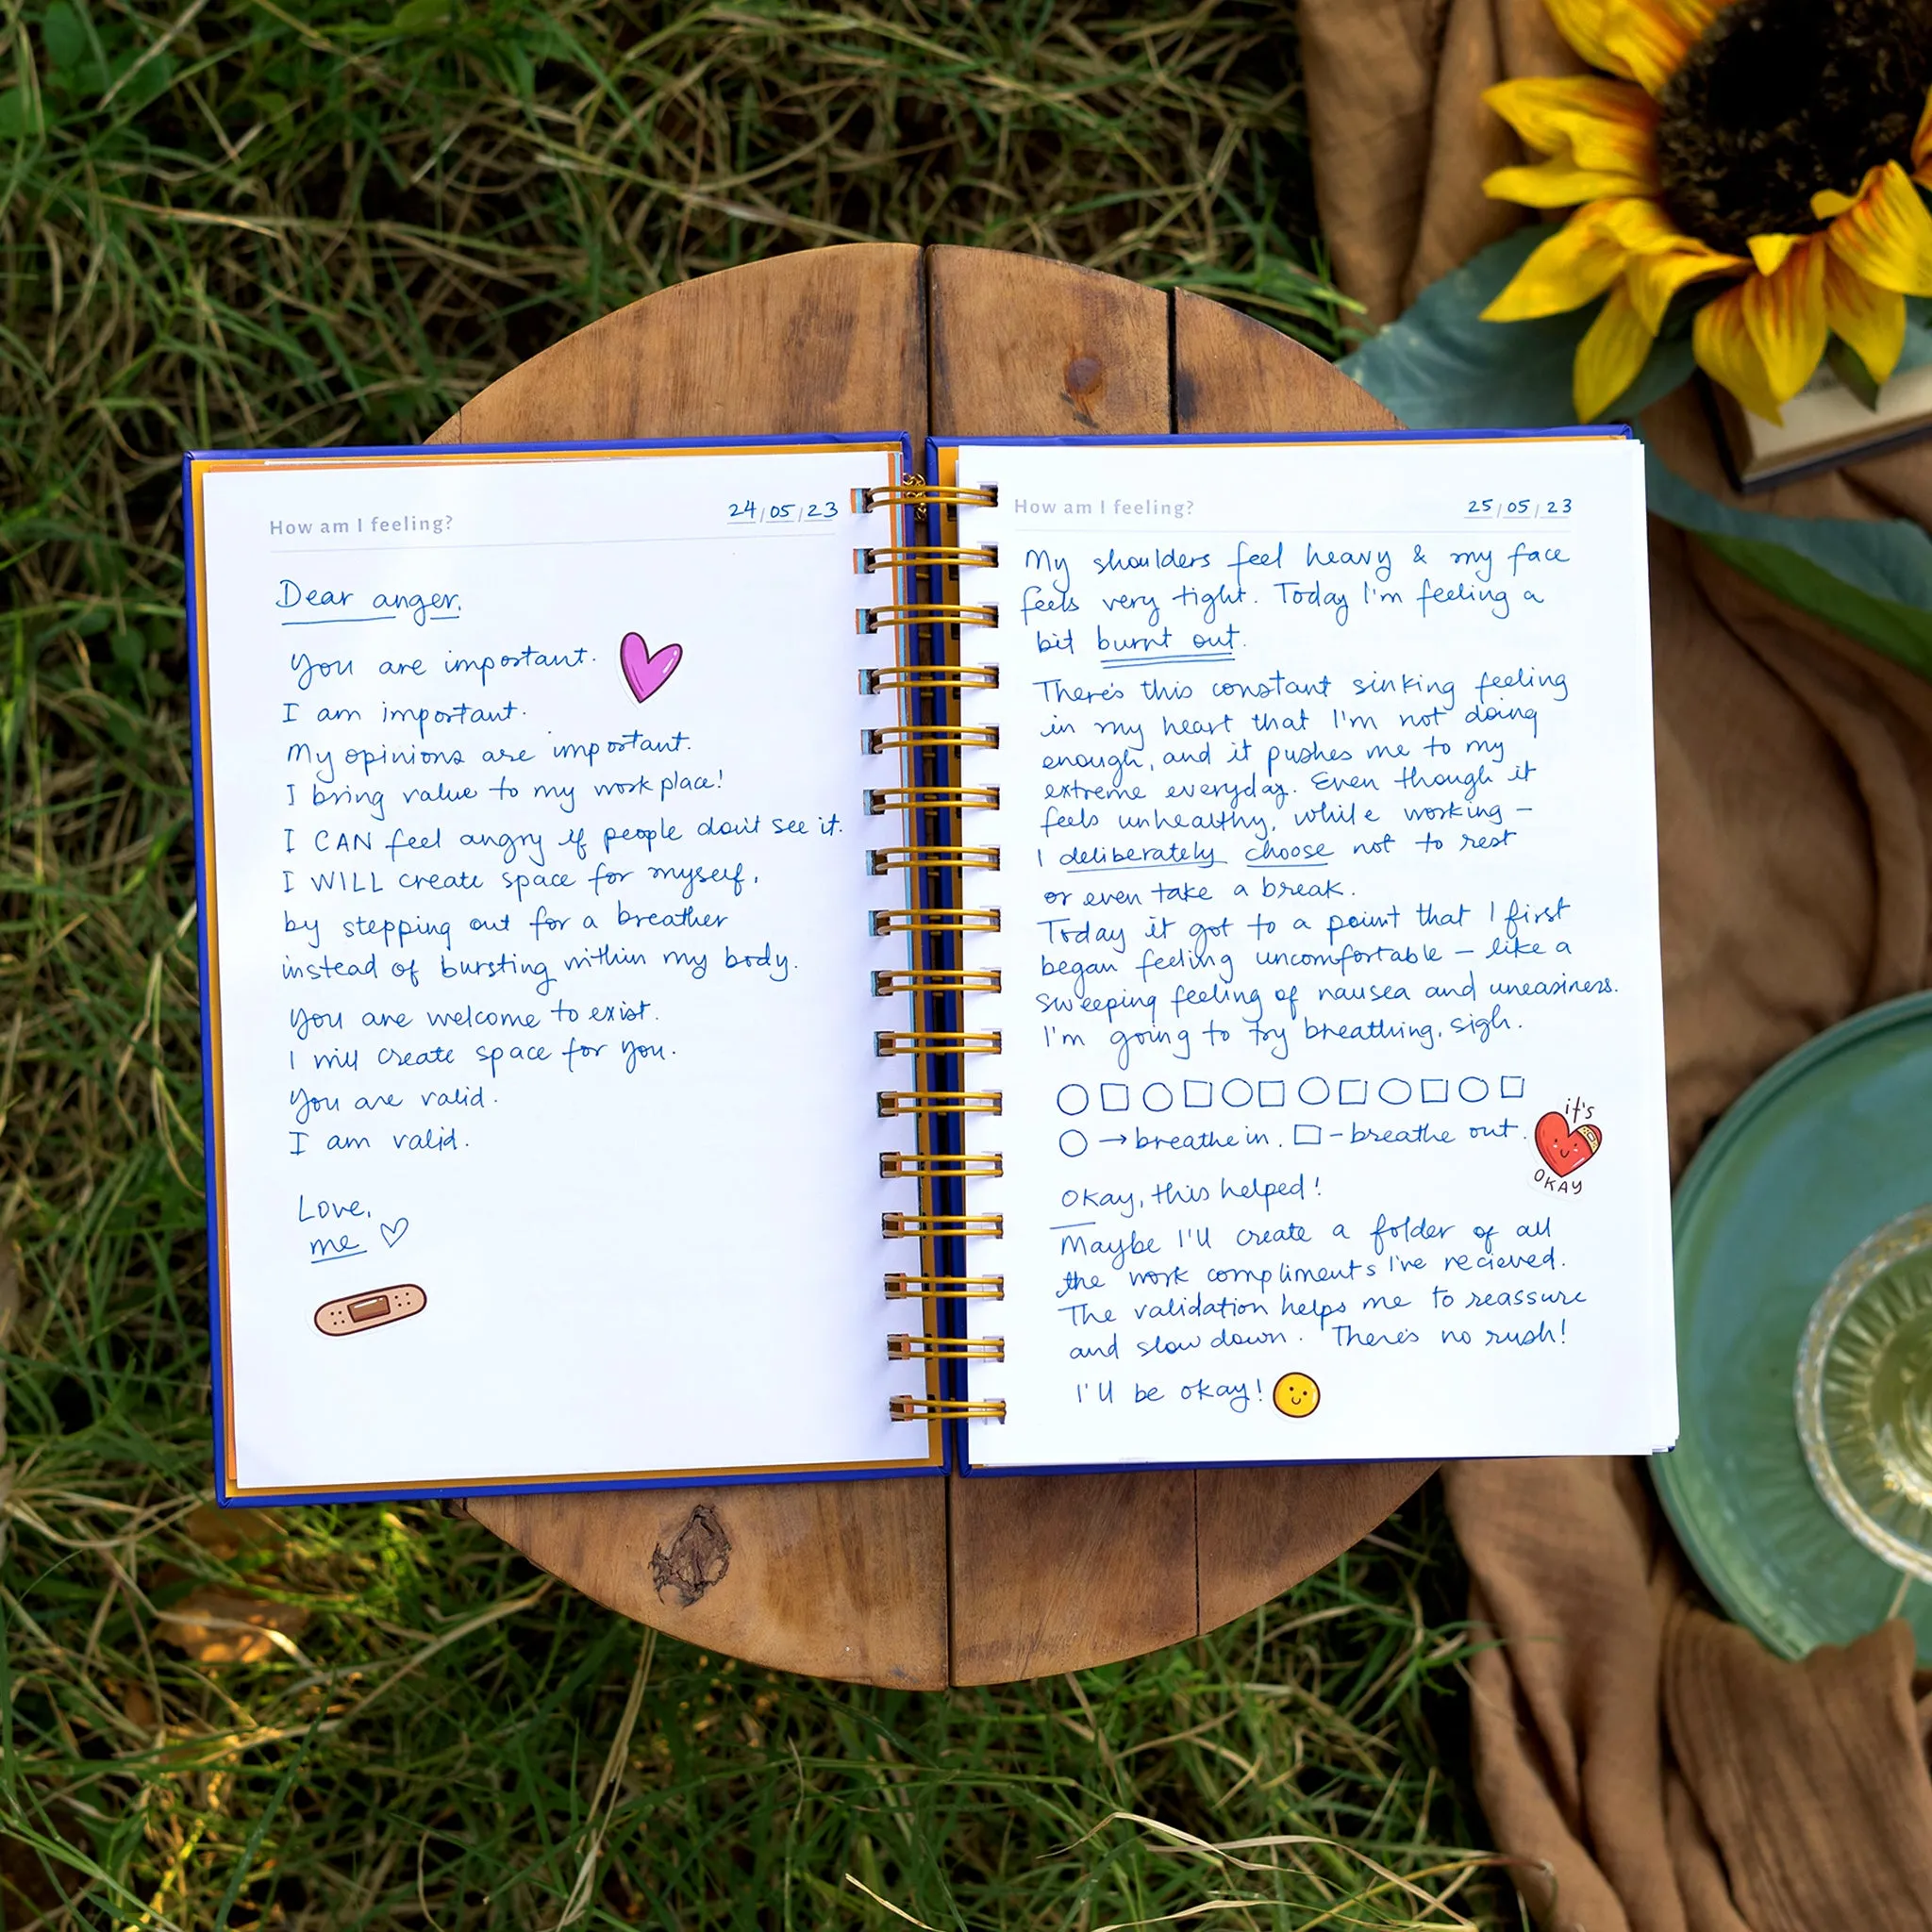 How am I feeling?
24/05/23
Dear anger,
You are important.
I am important.
My opinions are important.
I bring value to my work place!
I CAN feel angry if people don't see it.
I WILL create space for myself,
by stepping out for a breather
instead of bursting within my body.
You are welcome to exist.
I will create space for you.
You are valid.
I am valid.
Love,
me
How am I feeling?
25/05/23
My shoulders feel heavy & my face
feels very tight. Today I'm feeling a
bit burnt out.
There's this constant sinking feeling
in my heart that I'm not doing
enough, and it pushes me to my
extreme everyday. Even though it
feels unhealthy, while working –
I deliberately choose not to rest
or even take a break.
Today it got to a point that I first
began feeling uncomfortable – like a
sweeping feeling of nausea and uneasiness.
I'm going to try breathing, sigh.
○ □ ○ □ ○ □ ○ □ ○ □ ○ □
○ → breathe in. □ – breathe out.
it's
OKAY
Okay, this helped!
Maybe I'll create a folder of all
the work compliments I've recieved.
The validation helps me to reassure
and slow down. There's no rush!
I'll be okay!